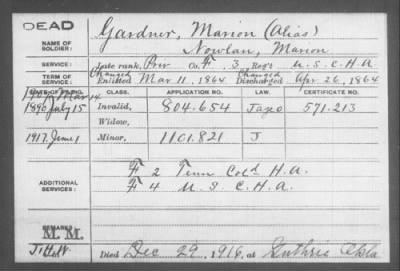 DEAD
NAME OF SOLDIER: Gardner, Marion (Alias)
Nowlan, Marion
SERVICE: Late rank, Priv Co. F, 3 Reg't U.S.C.H.A
TERM OF SERVICE: Changed Enlisted Mar 11, 1864 Changed Discharged Apr. 26, 1864
DATE OF FILING. CLASS. APPLICATION NO. LAW. CERTIFICATE NO.
Mar 14
1890 July 15 Invalid, 804.654 571.213
Widow,
1917. June 1 Minor, 1101.821 J
ADDITIONAL SERVICES: F 2 Tenn Col'd H.A.
F 4 U.S.C.H.A.
REMARKS
M.M.
Died Dec 29, 1916, at Guthrie Okla